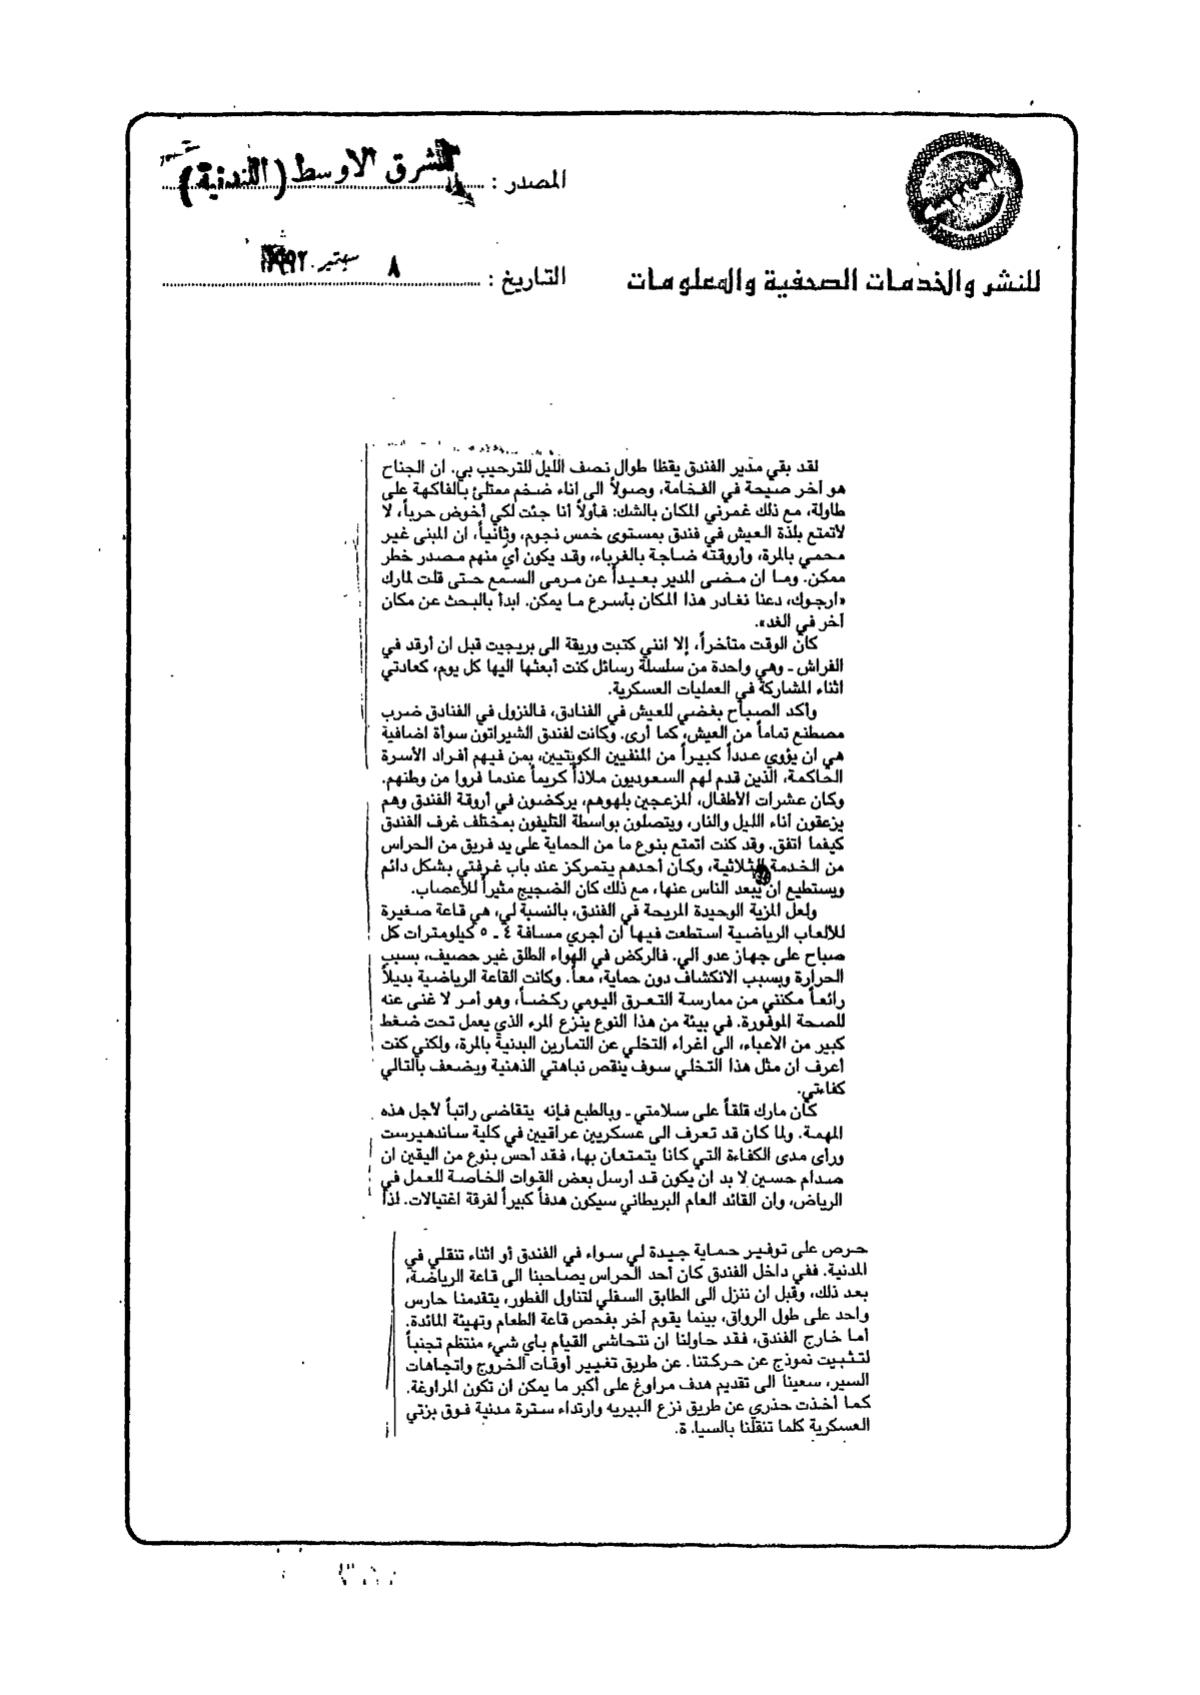 المصدر : الشرق الاوسط (اللندنية)
التاريخ : ٨ سبتمبر
للنشر والخدمات الصحفية والمعلومات
لقد بقي مدير الفندق يقظا طوال نصف الليل للترحيب بي. ان الجناح
هو آخر صيحة في الفخامة، وصولاً الى اناء ضخم ممتلئ بالفاكهة على
طاولة، مع ذلك غمرني المكان بالشك: فأولاً أنا جئت لكي أخوض حرباً، لا
لاتمتع بلذة العيش في فندق بمستوى خمس نجوم، وثانياً، ان المبنى غير
محمي بالمرة، وأروقته ضاجة بالغرباء، وقد يكون أي منهم مصدر خطر
ممكن. وما ان مضى المدير بعيداً عن مرمى السمع حتى قلت لمارك
«ارجوك، دعنا نغادر هذا المكان بأسرع ما يمكن. ابدأ بالبحث عن مكان
آخر في الغد».
كان الوقت متأخراً، إلا انني كتبت وريقة الى بريجيت قبل ان أرقد في
الفراش ـ وهي واحدة من سلسلة رسائل كنت أبعثها اليها كل يوم، كعادتي
اثناء المشاركة في العمليات العسكرية.
وأكد الصباح بغضي للعيش في الفنادق، فالنزول في الفنادق ضرب
مصطنع تماماً من العيش، كما أرى. وكانت لفندق الشيراتون سوأة اضافية
هي ان يؤوي عدداً كبيراً من المنفيين الكويتيين، بمن فيهم أفراد الأسرة
الحاكمة، الذين قدم لهم السعوديون ملاذاً كريماً عندما فروا من وطنهم.
وكان عشرات الأطفال، المزعجين بلهوهم، يركضون في أروقة الفندق وهم
يزعقون أناء الليل والنار، ويتصلون بواسطة التليفون بمختلف غرف الفندق
كيفما اتفق. وقد كنت اتمتع بنوع ما من الحماية على يد فريق من الحراس
من الخدمة الثلاثية، وكان أحدهم يتمركز عند باب غرفتي بشكل دائم
ويستطيع ان يبعد الناس عنها، مع ذلك كان الضجيج مثيراً للأعصاب.
ولعل المزية الوحيدة المريحة في الفندق، بالنسبة لي، هي قاعة صغيرة
للألعاب الرياضية استطعت فيها ان أجري مسافة ٤ ـ ٥ كيلومترات كل
صباح على جهاز عدو آلي. فالركض في الهواء الطلق غير حصيف، بسبب
الحرارة وبسبب الانكشاف دون حماية، معاً. وكانت القاعة الرياضية بديلاً
رائعاً مكنني من ممارسة التعرق اليومي ركضاً، وهو أمر لا غنى عنه
للصحة الموفورة. في بيئة من هذا النوع ينزع المرء الذي يعمل تحت ضغط
كبير من الأعباء، الى اغراء التخلي عن التمارين البدنية بالمرة، ولكني كنت
أعرف ان مثل هذا التخلي سوف ينقص نباهتي الذهنية ويضعف بالتالي
كفاءتي.
كان مارك قلقاً على سلامتي ـ وبالطبع فإنه يتقاضى راتباً لأجل هذه
المهمة. ولما كان قد تعرف الى عسكريين عراقيين في كلية ساندهيرست
ورأى مدى الكفاءة التي كانا يتمتعان بها، فقد أحس بنوع من اليقين ان
صدام حسين لا بد ان يكون قد أرسل بعض القوات الخاصة للعمل في
الرياض، وان القائد العام البريطاني سيكون هدفاً كبيراً لفرقة اغتيالات. لذا
حرص على توفير حماية جيدة لي سواء في الفندق أو اثناء تنقلي في
المدنية. ففي داخل الفندق كان أحد الحراس يصاحبنا الى قاعة الرياضة،
بعد ذلك، وقبل ان ننزل الى الطابق السفلي لتناول الفطور، يتقدمنا حارس
واحد على طول الرواق، بينما يقوم آخر بفحص قاعة الطعام وتهيئة المائدة.
أما خارج الفندق، فقد حاولنا ان نتحاشى القيام بأي شيء منتظم تجنباً
لتثبيت نموذج عن حركتنا. عن طريق تغيير أوقات الخروج واتجاهات
السير، سعينا الى تقديم هدف مراوغ على أكبر ما يمكن ان تكون المراوغة.
كما أخذت حذري عن طريق نزع البيريه وارتداء سترة مدنية فوق بزتي
العسكرية كلما تنقلنا